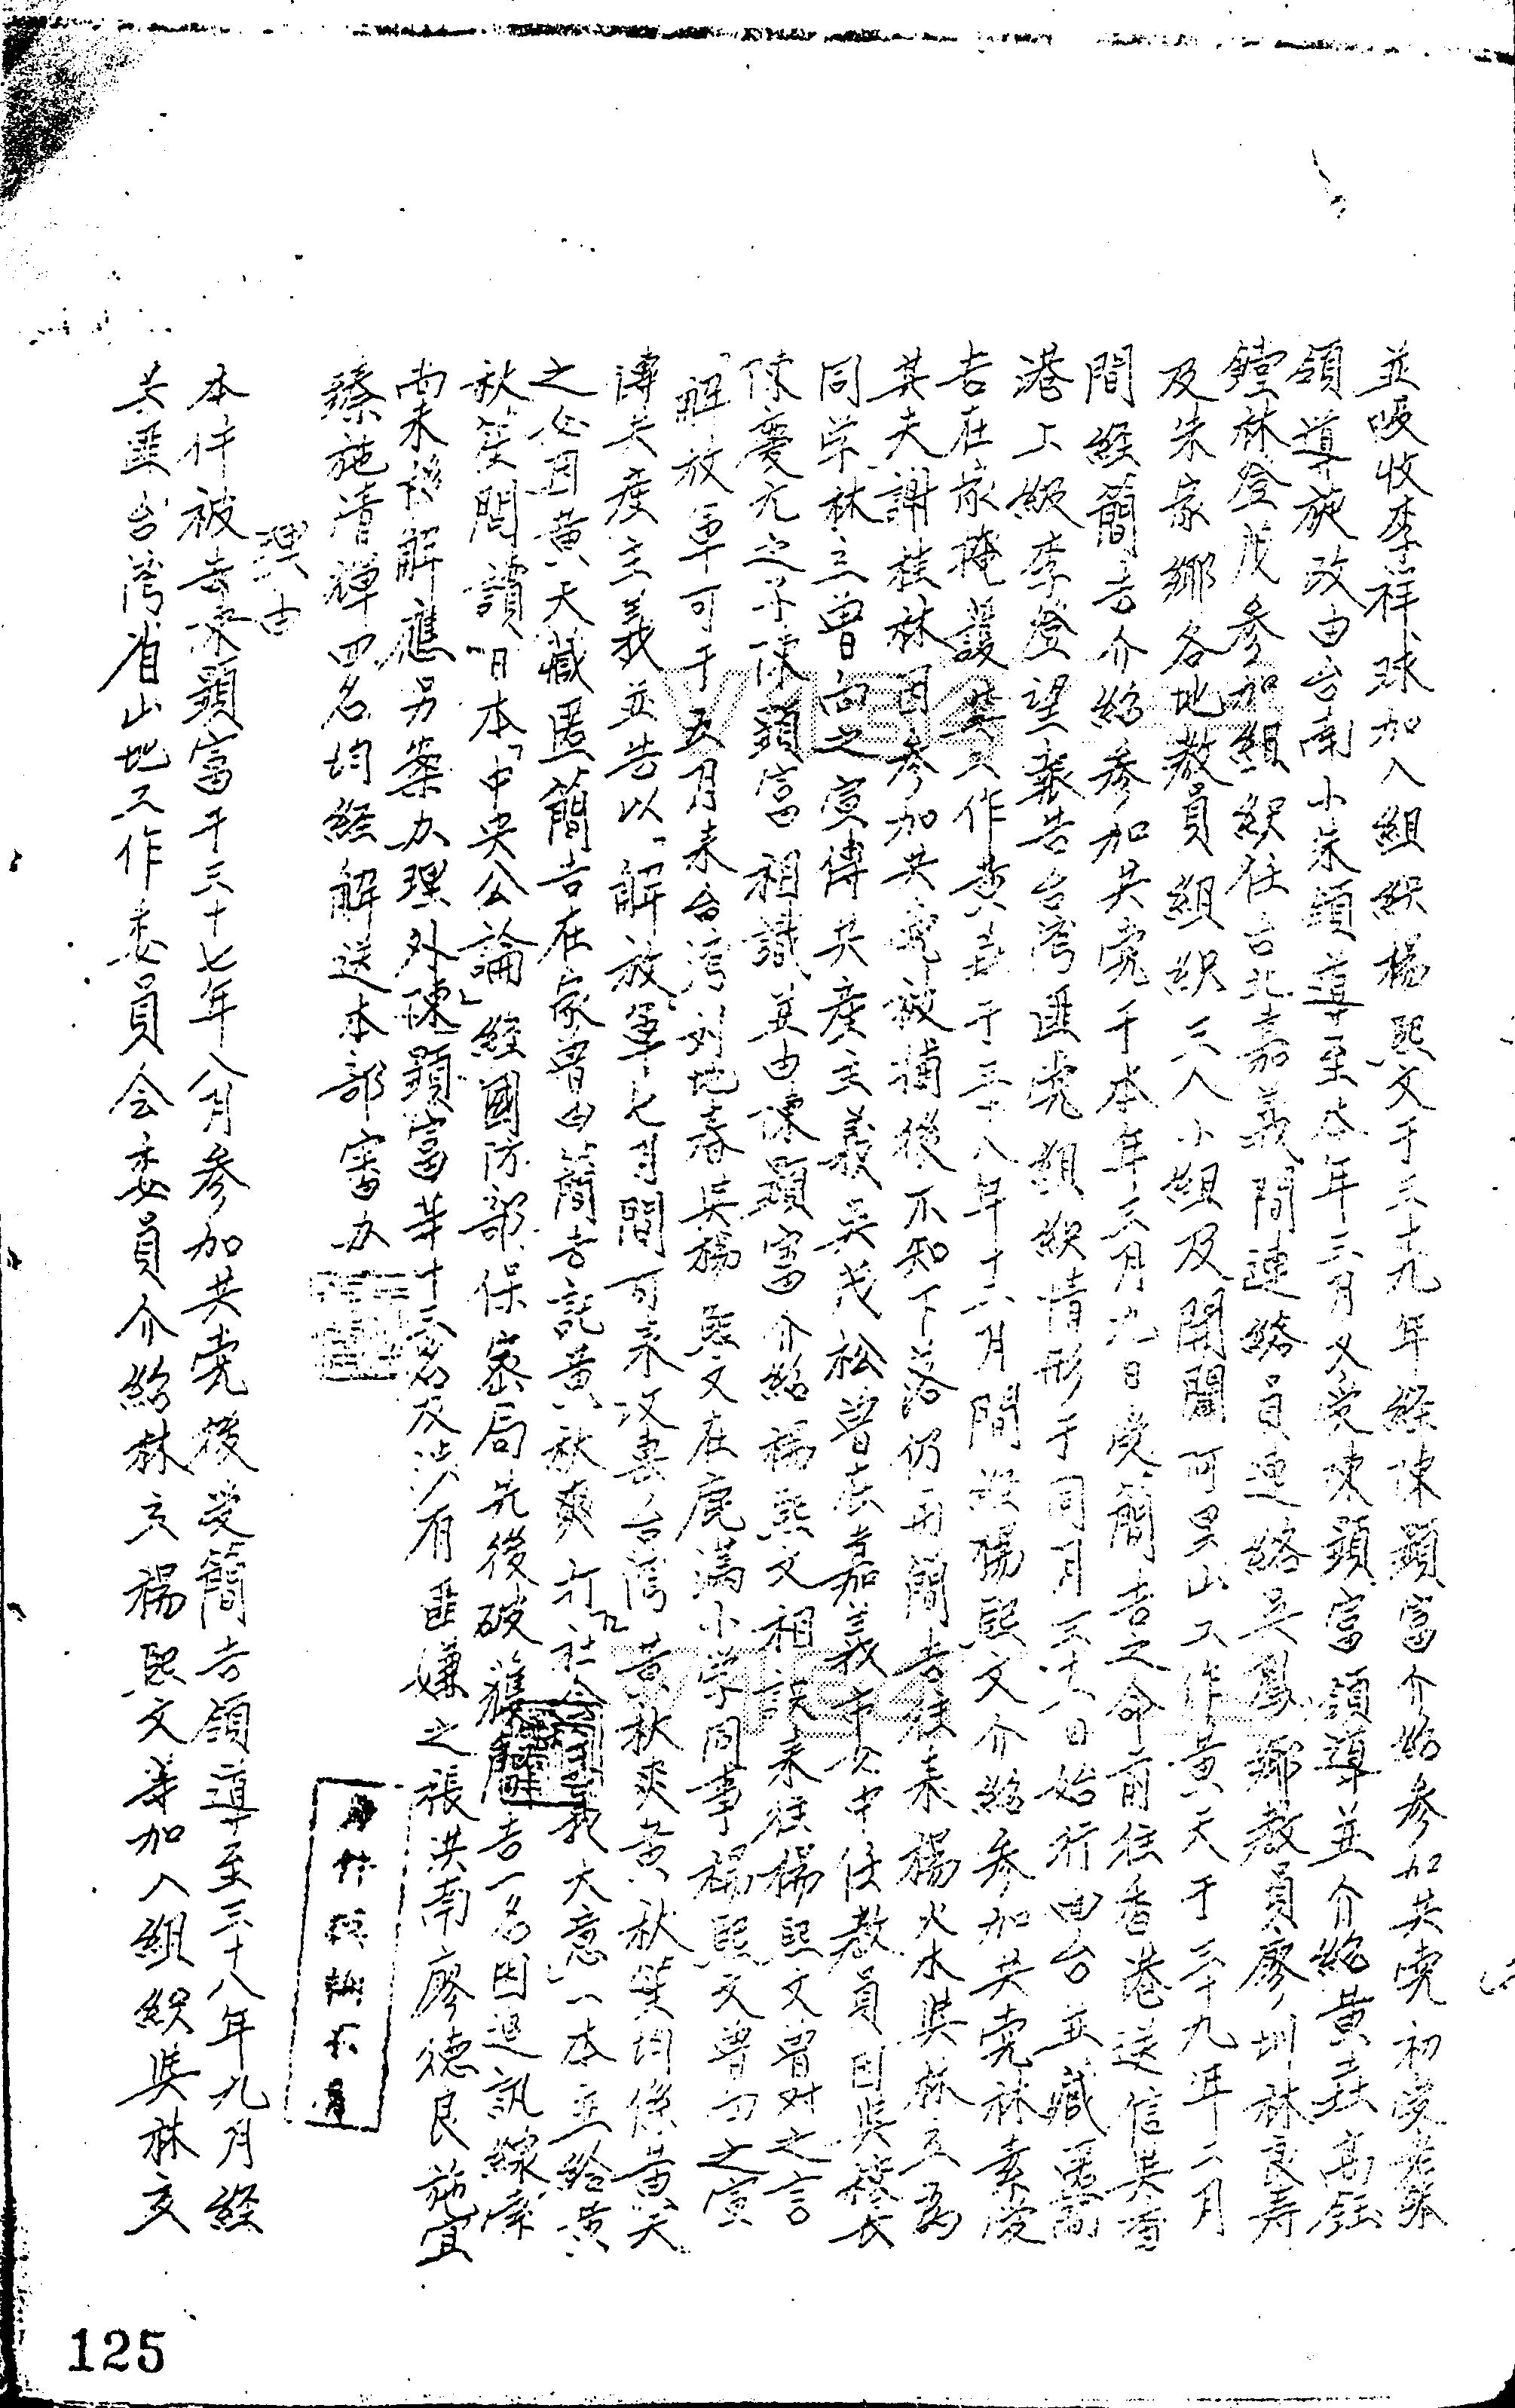 並吸收李祥球加入組織楊熙文于三十九年經陳顯富介紹參加共党初受
領導施改由台南小朱領導至本年三月又受陳顯富領導並介紹黃垚高鈺
鏜林登茂參加組織往台北嘉義間連絡員連絡吳鳳鄉教員廖圳林良寿
及朱家鄉各地教員組織三人小組及開闢阿里山工作黃天于三十九年二月
間經簡吉介紹參加共党于本年三月九日受簡吉之命前往香港送信與香
港上級李登望報告台灣匪党組織情形于同月三十八日始行回台並藏匿簡
吉在家掩護其工作黃垚于三十八年十一月間經楊熙文介紹參加共党林素愛
其夫謝桂林因參加共党被捕後不知下落仍用簡吉往來楊火水與林立為
同学林立曾向之宣傳共產主義吳茂松曾在嘉義市女中任教員因與校長
陳慶元之子陳顯富相識並由陳顯富介紹楊熙文相識來往楊熙文曾对之言
「解放軍可于五月來台灣」刘地春與楊熙文在鹿滿小学同事楊熙文曾向之宣
傳共產主義並告以「解放軍七月間可來攻襲台灣」黃秋爽黃秋笙均係黃天
之女因黃天藏匿簡吉在家曾由簡吉託黃秋爽打「社會主義大意」一本並給黃
秋笙閱讀日本「中央公論」經國防部保密局先後破獲簡吉一名因追訊線索
尚未後解應另案办理外陳顯富等十三名及涉有匪嫌之張洪南廖德良施宜
臻施清禪四名均經解送本部審办
理由
本件被告陳顯富于三十七年八月參加共党後受簡吉領導至三十八年九月經
共匪台灣省山地工作委員会委員介紹林立楊熙文等加入組織與林立
125